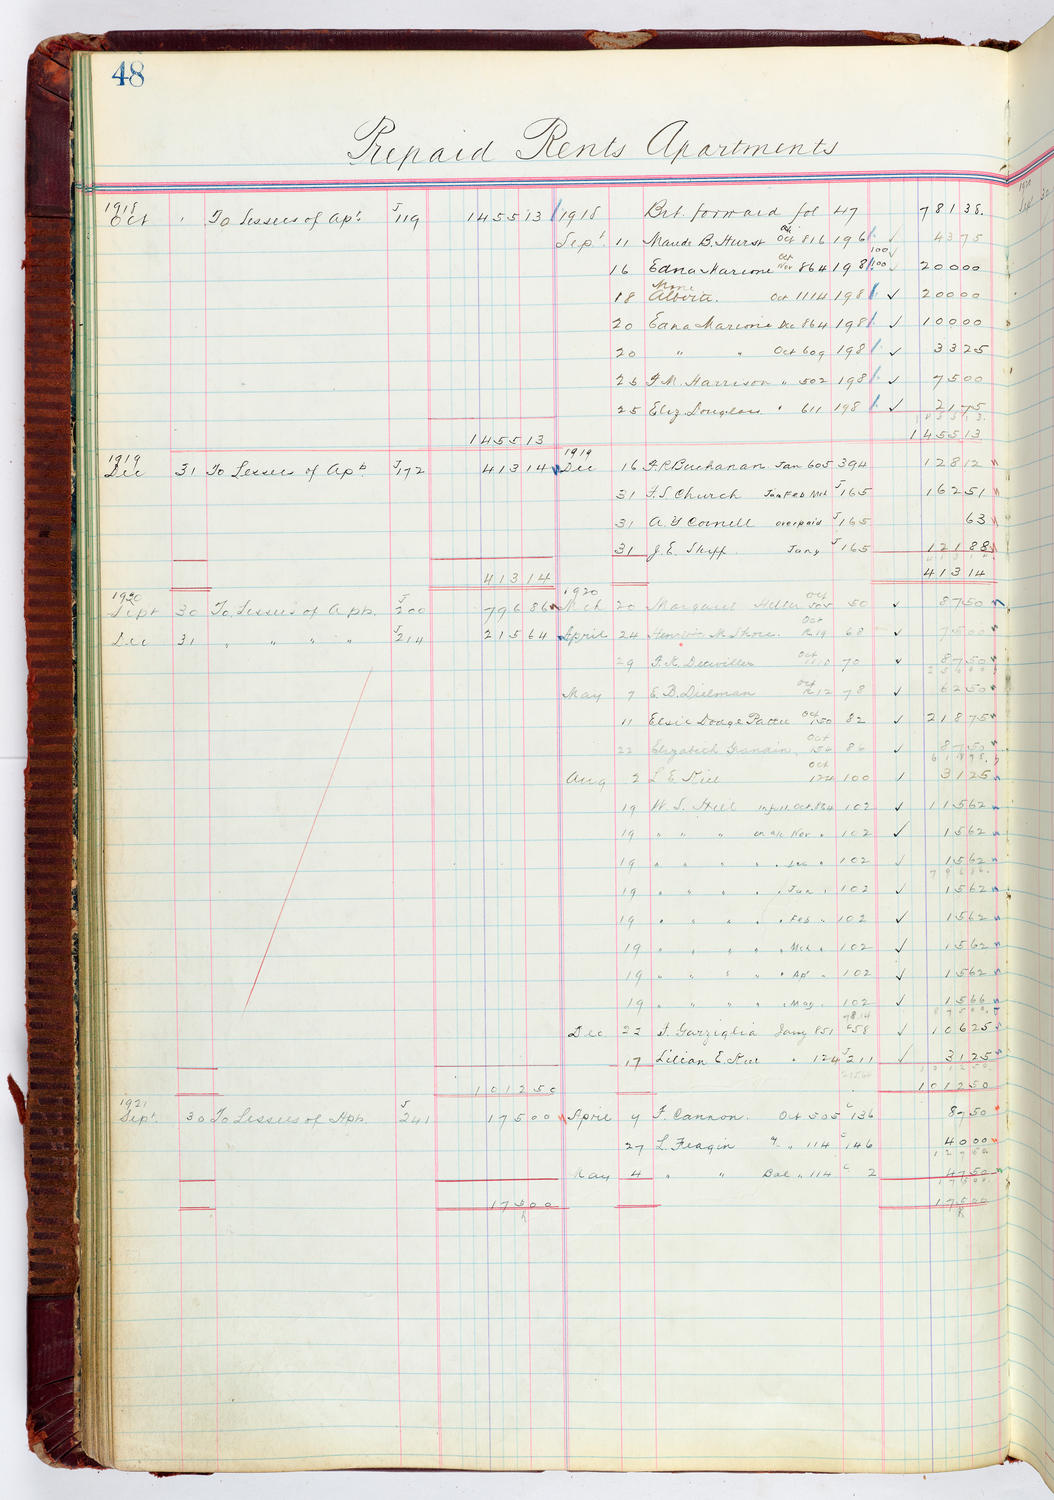 48
Prepaid Rents Apartments
1918 Oct 1 To Lessees of Apts J119 145513 1918 Brt. forward fol 47 78138
Sept 11 Maude B. Hurst Oct 816 196 4375
16 Edna Marione Oct Nov 864 198 100 100 20000
18 Mme Alberti. Oct 1114 198 20000
20 Edna Marione Dec 864 198 10000
20 " " Oct 609 198 3325
25 F. M. Harrison " 502 198 7500
25 Eliz Douglass " 611 198 2175
145513 145513
1919 Dec 31 To Lessees of Apts J172 41314 1919 Dec 16 F. P. Buchanan Jan 605 394 12812
31 F. S. Church Jan Feb Mch J165 16251
31 A. Y. Cornell overpaid J165 63
31 J. E. Shipp Jany J165 12188
41314 41314
1920 Sept 30 To Lessees of Apts. J200 79686 1920 Mch 20 Margaret Heller Oct 50 8750
Dec 31 " " " " J214 21564 April 24 M. Shore. Oct 68 7500
29 Oct 70 8750
May 7 E. B. Dielman Oct 78 6250
11 Elsie Dodge Pattee Oct 82 21875
22 Elizabeth Oct 86 8750
Aug 2 L. E. Oct 124 100 3125
19 W. S. Oct. 102 11562
19 " " " on a/c Nov " 102 1562
19 " " " " Dec " 102 1562
19 " " " " Jan " 102 1562
19 " " " " Feb " 102 1562
19 " " " " Mch " 102 1562
19 " " " " Apl " 102 1562
19 " " " " May " 102 1566
Dec 22 F. Garziglia Jany 851 C58 10625
17 Lilian E. " 124 J211 3125
101250 101250
1921 Sept. 30 To Lessees of Apts. J241 17500 April 4 F. Cannon. Oct 505 C136 8750
27 L. Feagin " " 114 C146 4000
May 4 " " Bal " 114 C2 4750
17500 17500